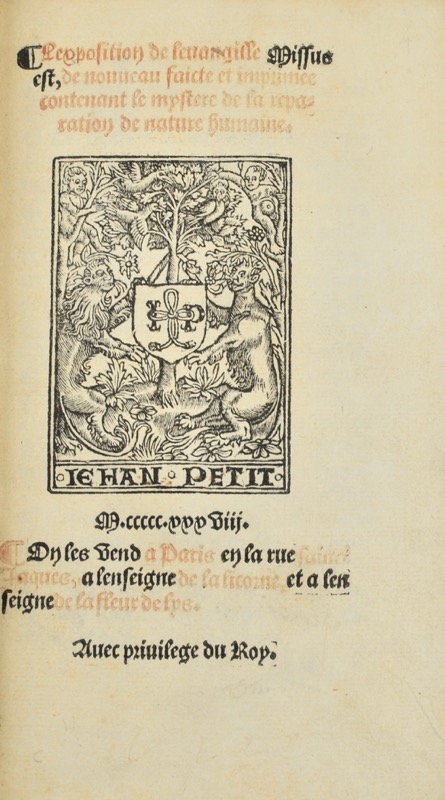 ¶Lexposition de leuangille Missus
est, de nouueau faicte et imprimee
contenant le mystere de la repa-
ration de nature humaine.
IEHAN PETIT
M.ccccc.xxxViij.
¶On les Vend a Paris en la rue sainct
Jaques, a lenseigne de la licorne et a len
seigne de la fleur de lys.
Auec priuilege du Roy.